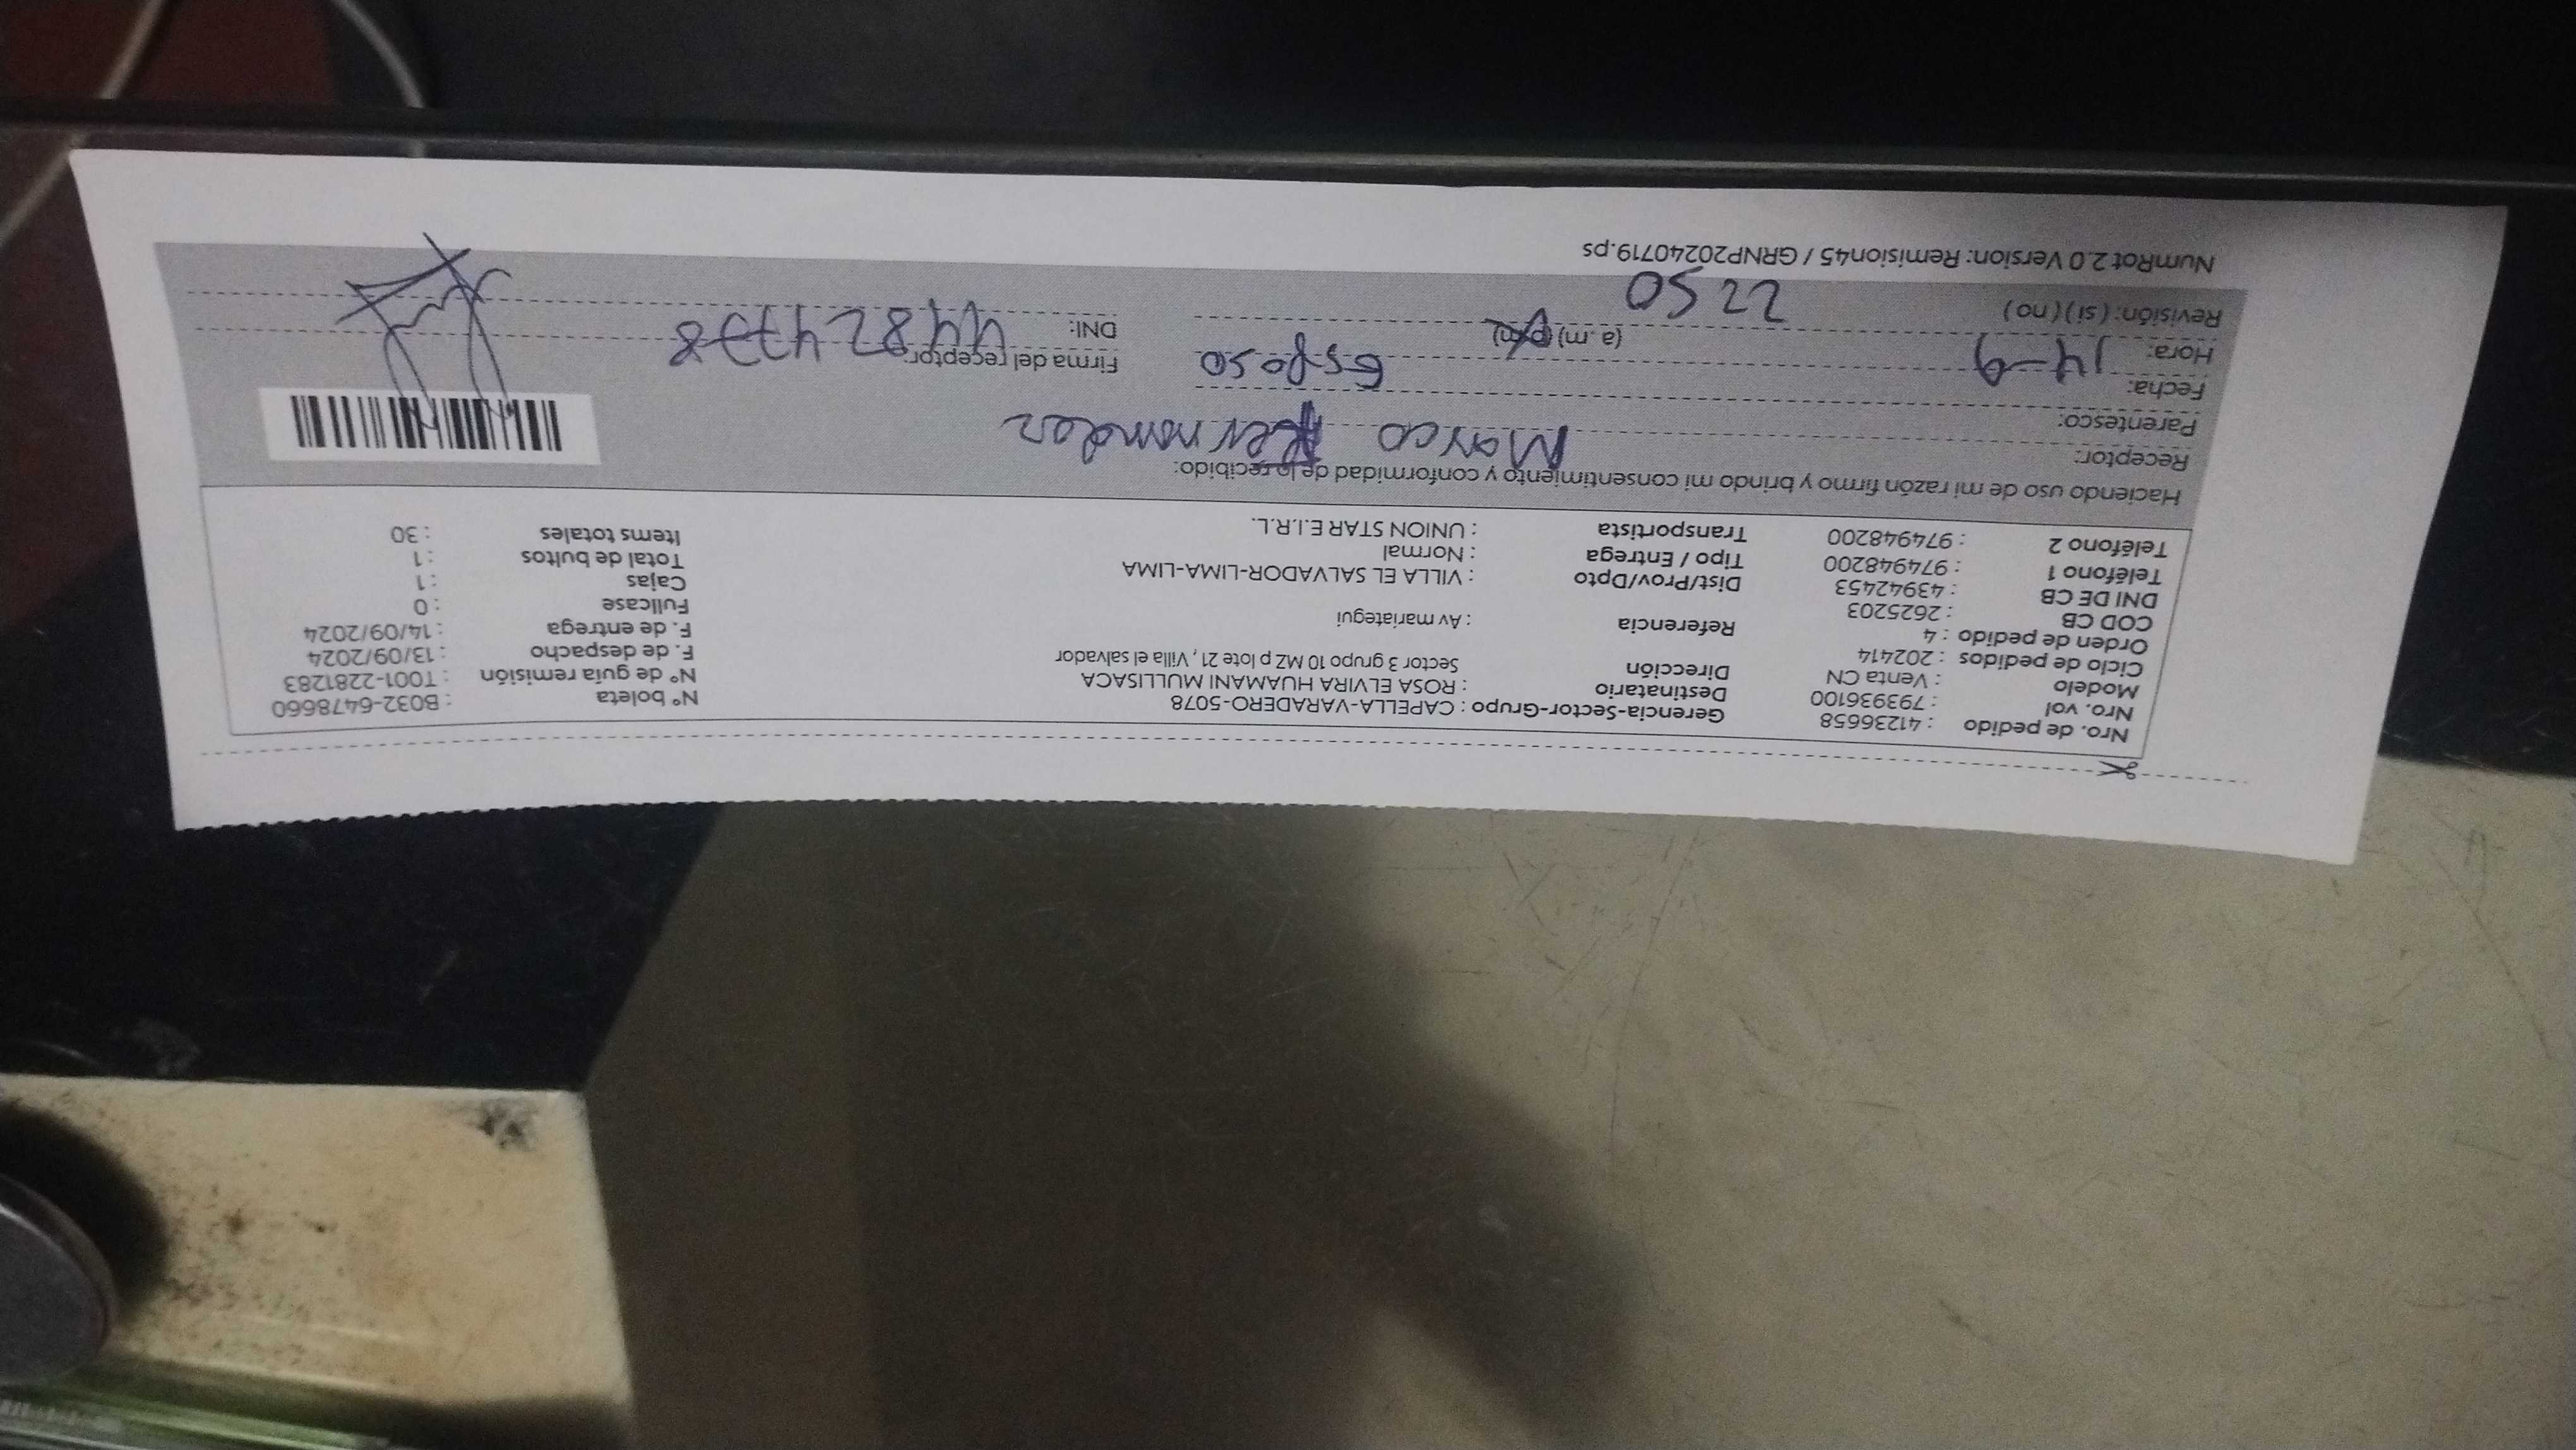 Nro. de pedido : 41236658 Gerencia-Sector-Grupo : CAPELLA-VARADERO-5078 N° boleta : B032-6478660
Nro. vol : 793936100 Destinatario : ROSA ELVIRA HUAMANI MULLISACA N° de guía remisión : T001-2281283
Modelo : Venta CN Dirección Sector 3 grupo 10 MZ p lote 21 , Villa el salvador F. de despacho : 13/09/2024
Ciclo de pedidos : 202414 F. de entrega : 14/09/2024
Orden de pedido : 4 Referencia : Av mariategui Fullcase : 0
COD CB : 2625203 Cajas : 1
DNI DE CB : 43942453 Dist/Prov/Dpto : VILLA EL SALVADOR-LIMA-LIMA Total de bultos : 1
Teléfono 1 : 974948200 Tipo / Entrega : Normal Items totales : 30
Teléfono 2 : 974948200 Transportista : UNION STAR E.I.R.L.
Haciendo uso de mi razón firmo y brindo mi consentimiento y conformidad de lo recibido:
Receptor: Marco Hernandez
Parentesco: esposo
Fecha: 14-9 Firma del receptor:
Hora: 22 50 (a.m) (p.m) DNI: 44824778
Revisión: (si) (no)
NumRot 2.0 Version: Remision45 / GRNP20240719.ps